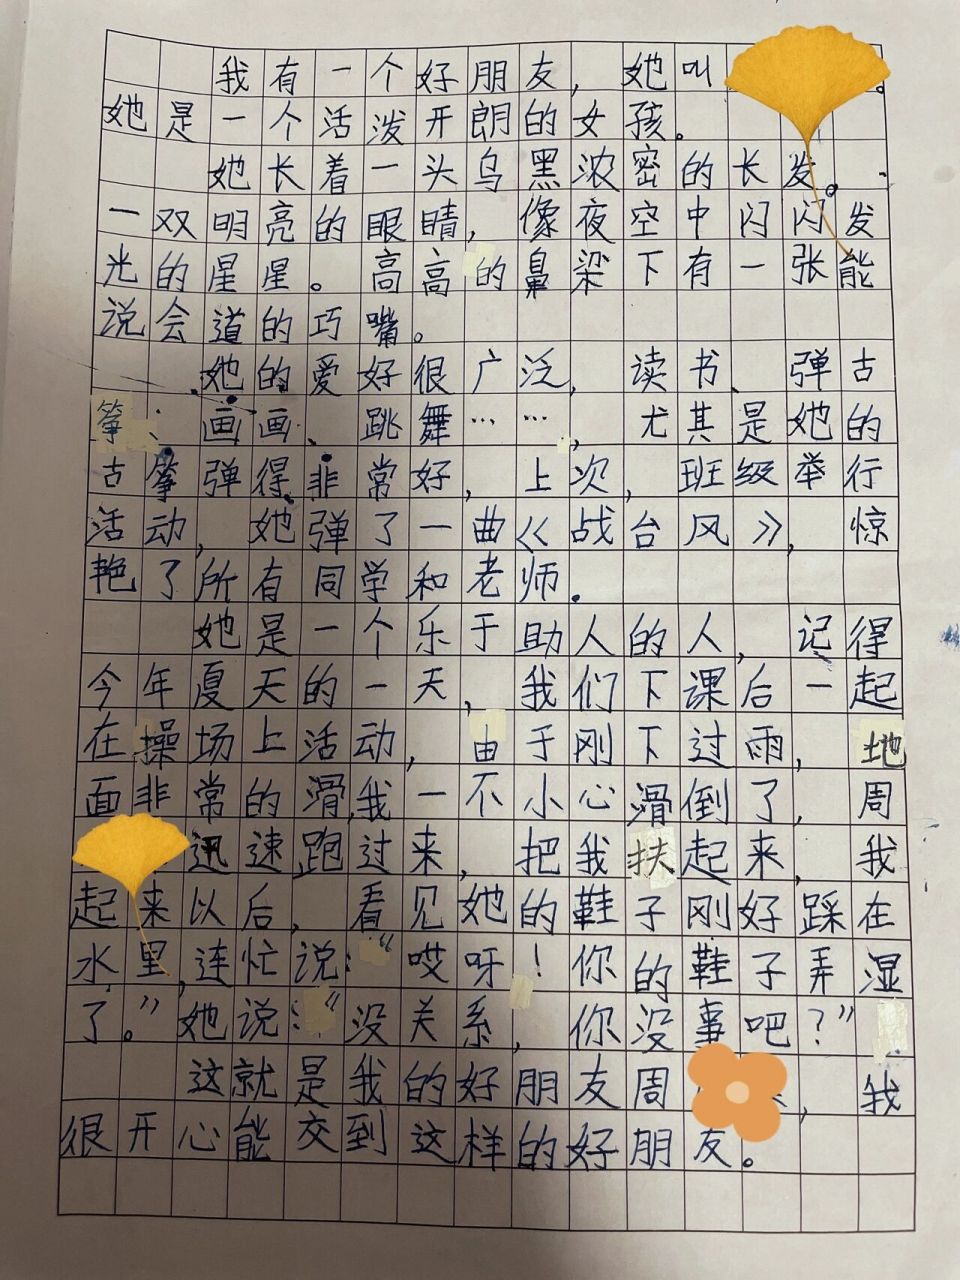 我有一个好朋友，她叫
她是一个活泼开朗的女孩。
她长着一头乌黑浓密的长发。
一双明亮的眼睛，像夜空中闪闪发
光的星星。高高的鼻梁下有一张能
说会道的巧嘴。
她的爱好很广泛，读书、弹古
筝、画画、跳舞……，尤其是她的
古筝弹得非常好，上次，班级举行
活动，她弹了一曲《战台风》，惊
艳了所有同学和老师.
她是一个乐于助人的人，记得
今年夏天的一天，我们下课后一起
在操场上活动，由于刚下过雨，地
面非常的滑,我一不小心滑倒了，周
迅速跑过来，把我扶起来，我
起来以后，看见她的鞋子刚好踩在
水里,连忙说：“哎呀！你的鞋子弄湿
了。”她说：“没关系，你没事吧？”
这就是我的好朋友周，我
很开心能交到这样的好朋友。